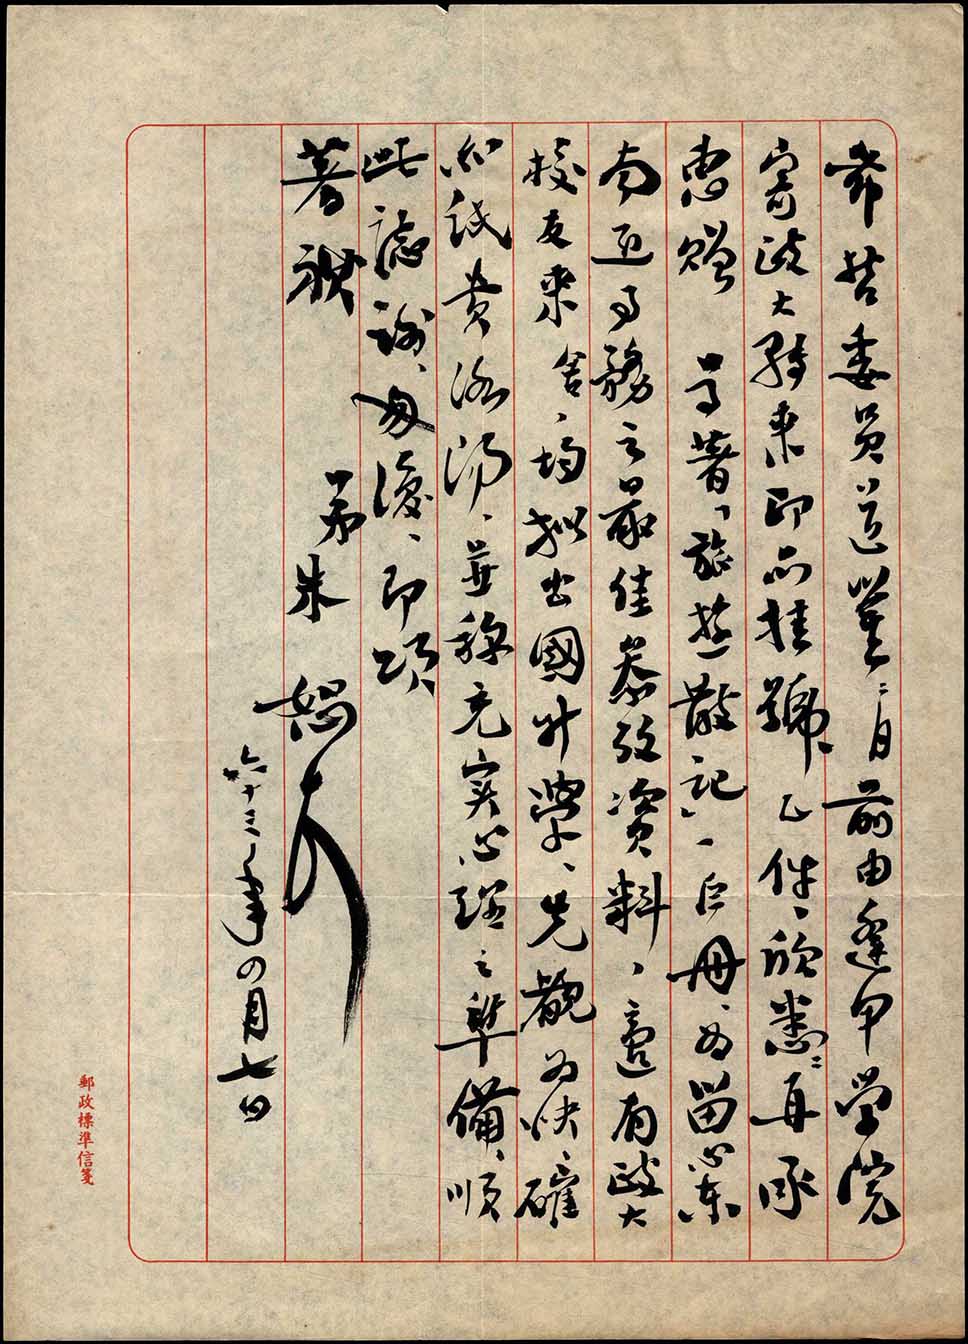 希哲委員道鑒:二月前由逢甲學院
寄政大轉來印品掛號乙件、欣悉;再承
惠贈 尊著「旅遊散記」一巨冊、為留心東
南亞事務之最佳參攷資料,適有政大
校友來舍、均擬出國升學、先覩為快、確
亦紙貴洛陽、並稱充實心理之準備、順
此誌謝、匆復、即頌
著祺
弟朱恕
六十三年四月七日
郵政標準信箋